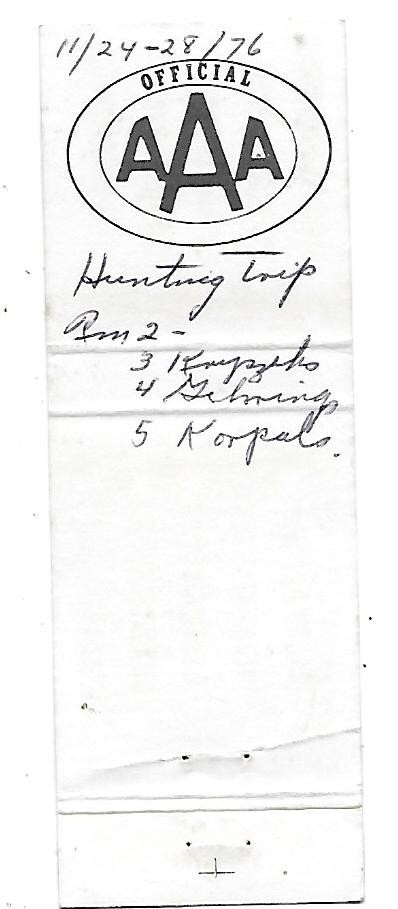 11/24-28/76
OFFICIAL
AAA
Hunting Trip
Rm 2 -
3
4 Gehrings
5 Korpals.